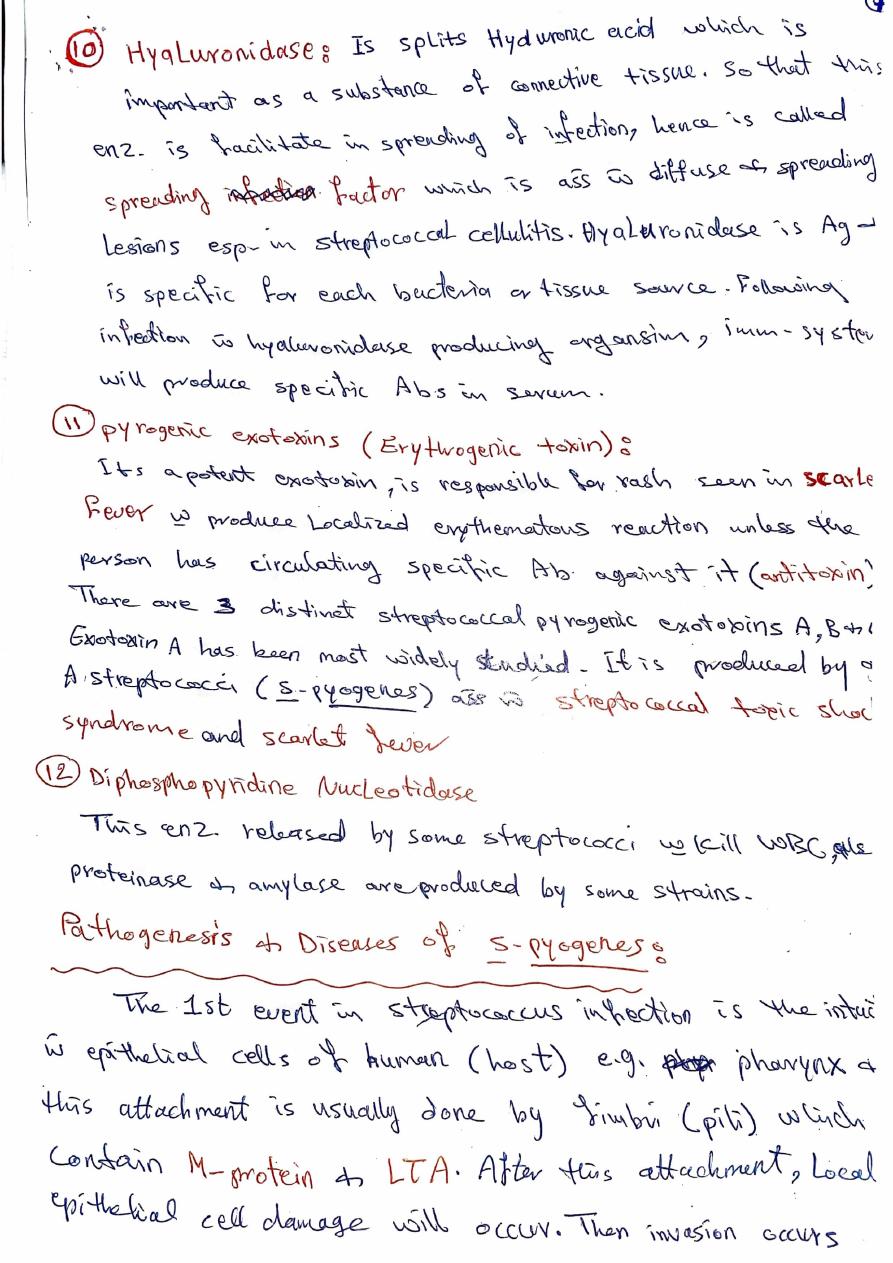 10 Hyaluronidase: Is splits Hyduronic acid which is
important as a substance of connective tissue. So that this
enz. is facilitate in spreading of infection, hence is called
spreading factor which is ass w̄ diffuse & spreading
Lesions esp- in streptococcal cellulitis. Hyaluronidase is Ag →
is specific for each bacteria or tissue source. Following
infection w̄ hyaluronidase producing organsim, imm-syster
will produce specific Abs in serum.
11 pyrogenic exotoxins (Erythrogenic toxin):
Its a potent exotoxin, is responsible for rash seen in scarle
Fever w̲ produce Localized erythematous reaction unless the
person has circulating specific Ab. against it (antitoxin)
There are 3 distinct streptococcal pyrogenic exotoxins A, B &
Exotoxin A has been most widely studied. It is produced by
A. streptococci (S-pyogenes) ass w̄ streptococcal toxic shoc
syndrome and scarlet fever
12 Diphosphopyridine Nucleotidase
This enz. released by some streptococci w̲ kill WBC,
proteinase & amylase are produced by some strains.
Pathogenesis & Diseases of S-pyogenes:
The 1st event in streptococcus infection is the
w̄ epithelial cells of human (host) e.g. pharynx &
this attachment is usually done by fimbri (pili) which
contain M-protein & LTA. After this attachment, Local
epithelial cell damage will occur. Then invasion occurs